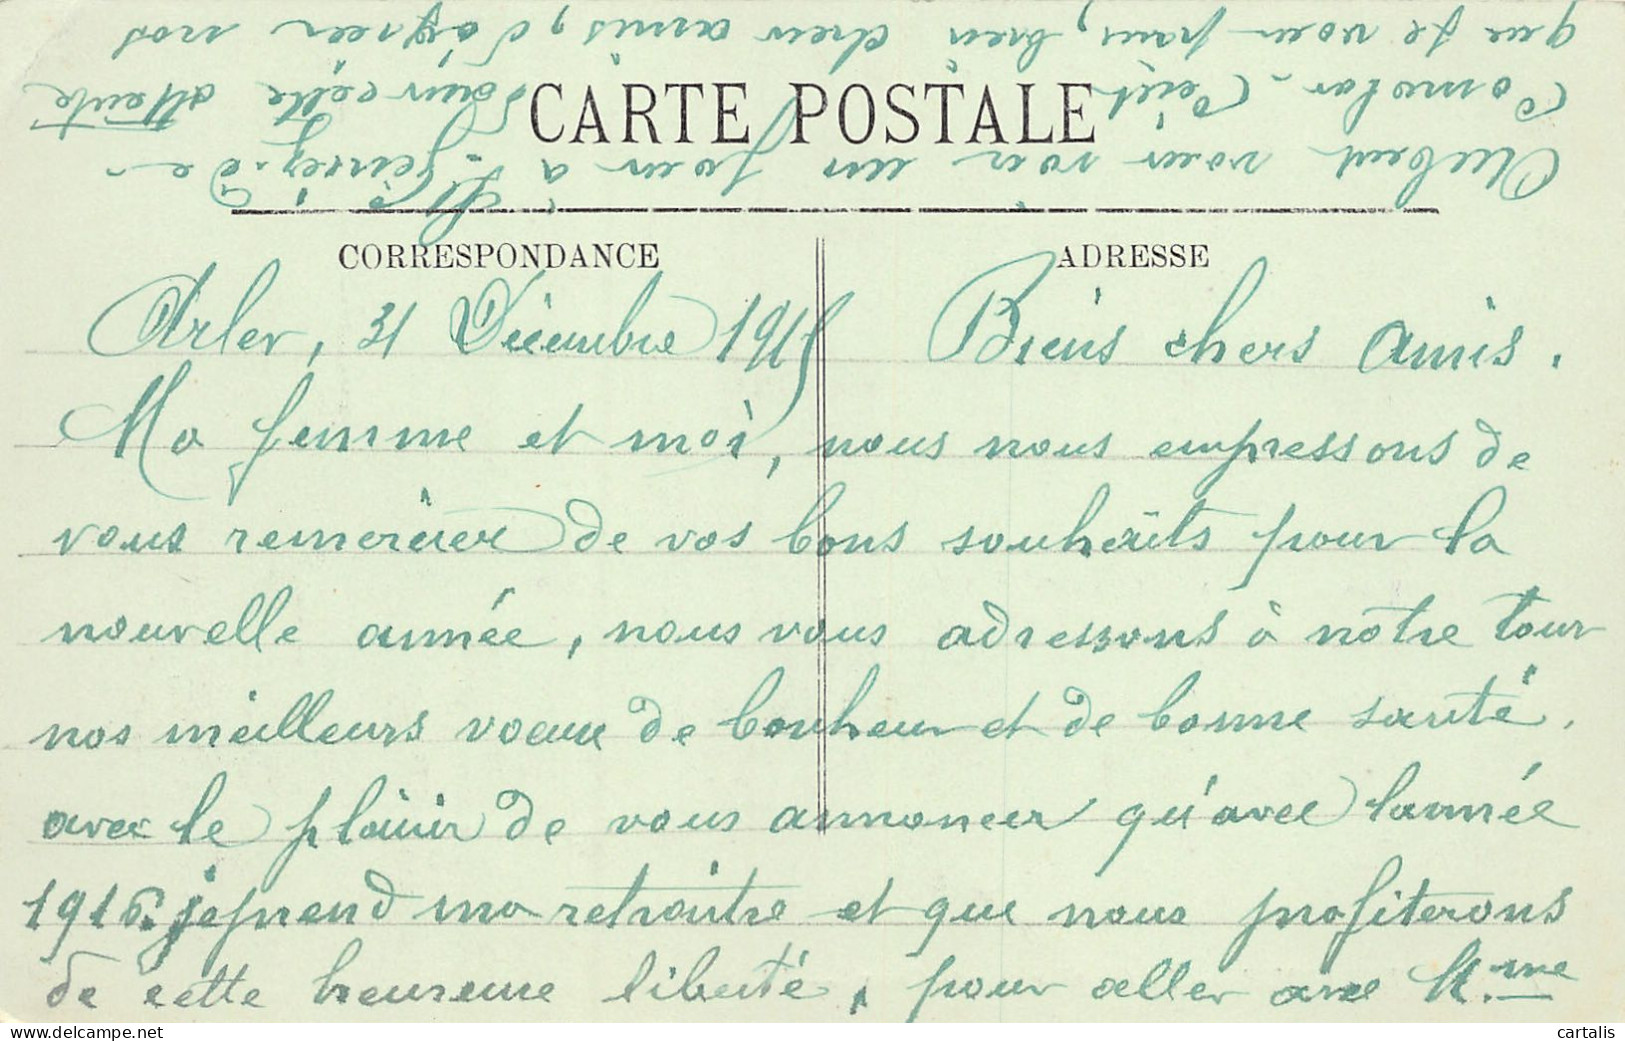 CARTE POSTALE
CORRESPONDANCE
ADRESSE
Arles, 31 Décembre 1915
Biens chers amis.
Ma femme et moi, nous nous empressons de
vous remercier de vos bons souhaits pour la
nouvelle année, nous vous adressons à notre tour
nos meilleurs voeux de bonheur et de bonne santé,
avec le plaisir de vous annoncer qu'avec l'année
1916. je prend ma retraitre et que nous profiterons
de cette heureuse liberté, pour aller avec Mme
Aubert vous voir un jour à St Geniez-de-
Comolas. C'est dans cette attente
que je vous prie, bien chers amis, d'agréer nos
cartalis